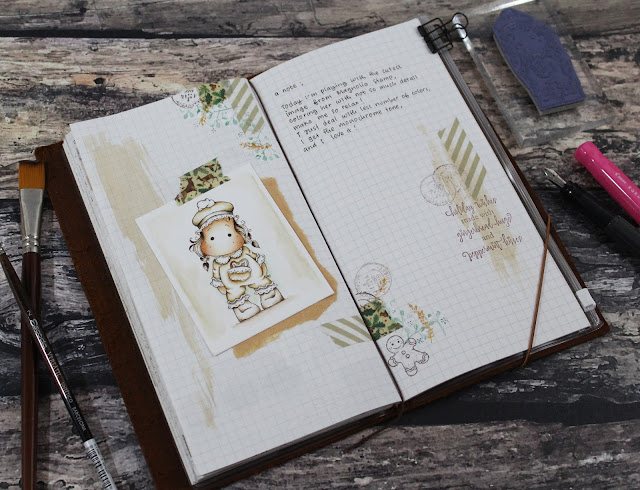 a note :
Today i'm playing with the latest
image from Magnolia Stamp,
coloring her with not so much detail
make me so relax!
I just deal with less number of colors,
I get the monochrome tone,
and I love it!
holiday wishes
made with
gingerbread hugs
and
peppermint kisses